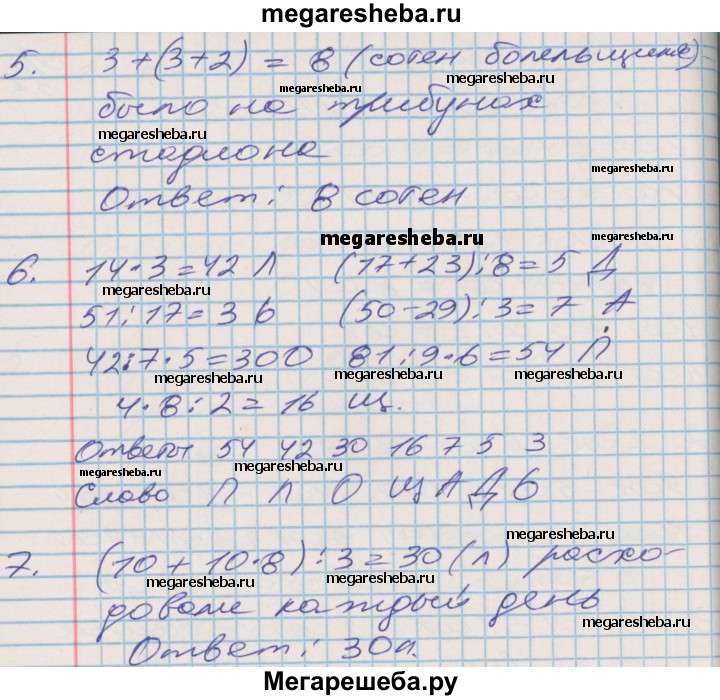 megaresheba.ru
5. 3+(3+2) = 8 (сотен болельщиков)
megaresheba.ru megaresheba.ru
было на трибунах
megaresheba.ru
стадиона
megaresheba.ru
Ответ: 8 сотен
megaresheba.ru
6. 14·3=42 Л (17+23):8=5 Д
megaresheba.ru
51:17=3 Ь (50-29):3=7 А
42:7·5=30 О 81:9·6=54 П
megaresheba.ru megaresheba.ru megaresheba.ru
4·8:2=16 Щ.
Ответы 54 42 30 16 7 5 3
megaresheba.ru megaresheba.ru
Слово П Л О Щ А Д Ь
megaresheba.ru
7. (10+10·8):3=30(л) расхо-
megaresheba.ru megaresheba.ru
довали каждый день
megaresheba.ru
Ответ: 30л.
Мегарешеба.ру